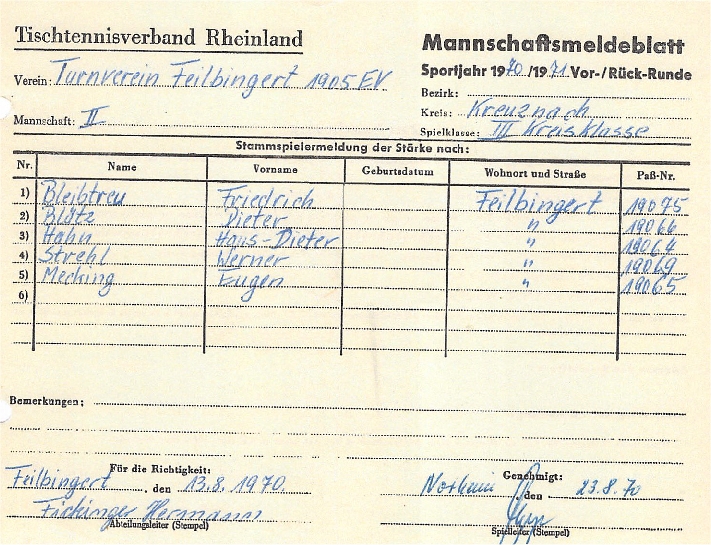 Tischtennisverband Rheinland
Mannschaftsmeldeblatt
Verein: Turnverein Feilbingert 1905 EV
Sportjahr 1970/1971 Vor-/Rück-Runde
Bezirk:
Mannschaft: II
Kreis: Kreuznach
Spielklasse: III Kreisklasse
Stammspielermeldung der Stärke nach:
Nr. Name Vorname Geburtsdatum Wohnort und Straße Paß-Nr.
1) Bleibtreu Friedrich Feilbingert 19075
2) Blätz Dieter " 19066
3) Hahn Hans-Dieter " 19064
4) Strehl Werner " 19069
5) Mecking Eugen " 19065
6)
Bemerkungen:
Für die Richtigkeit: Genehmigt:
Feilbingert, den 13.8.1970 Norheim den 23.8.70
Fickinger Hermann
Abteilungsleiter (Stempel) Spielleiter (Stempel)